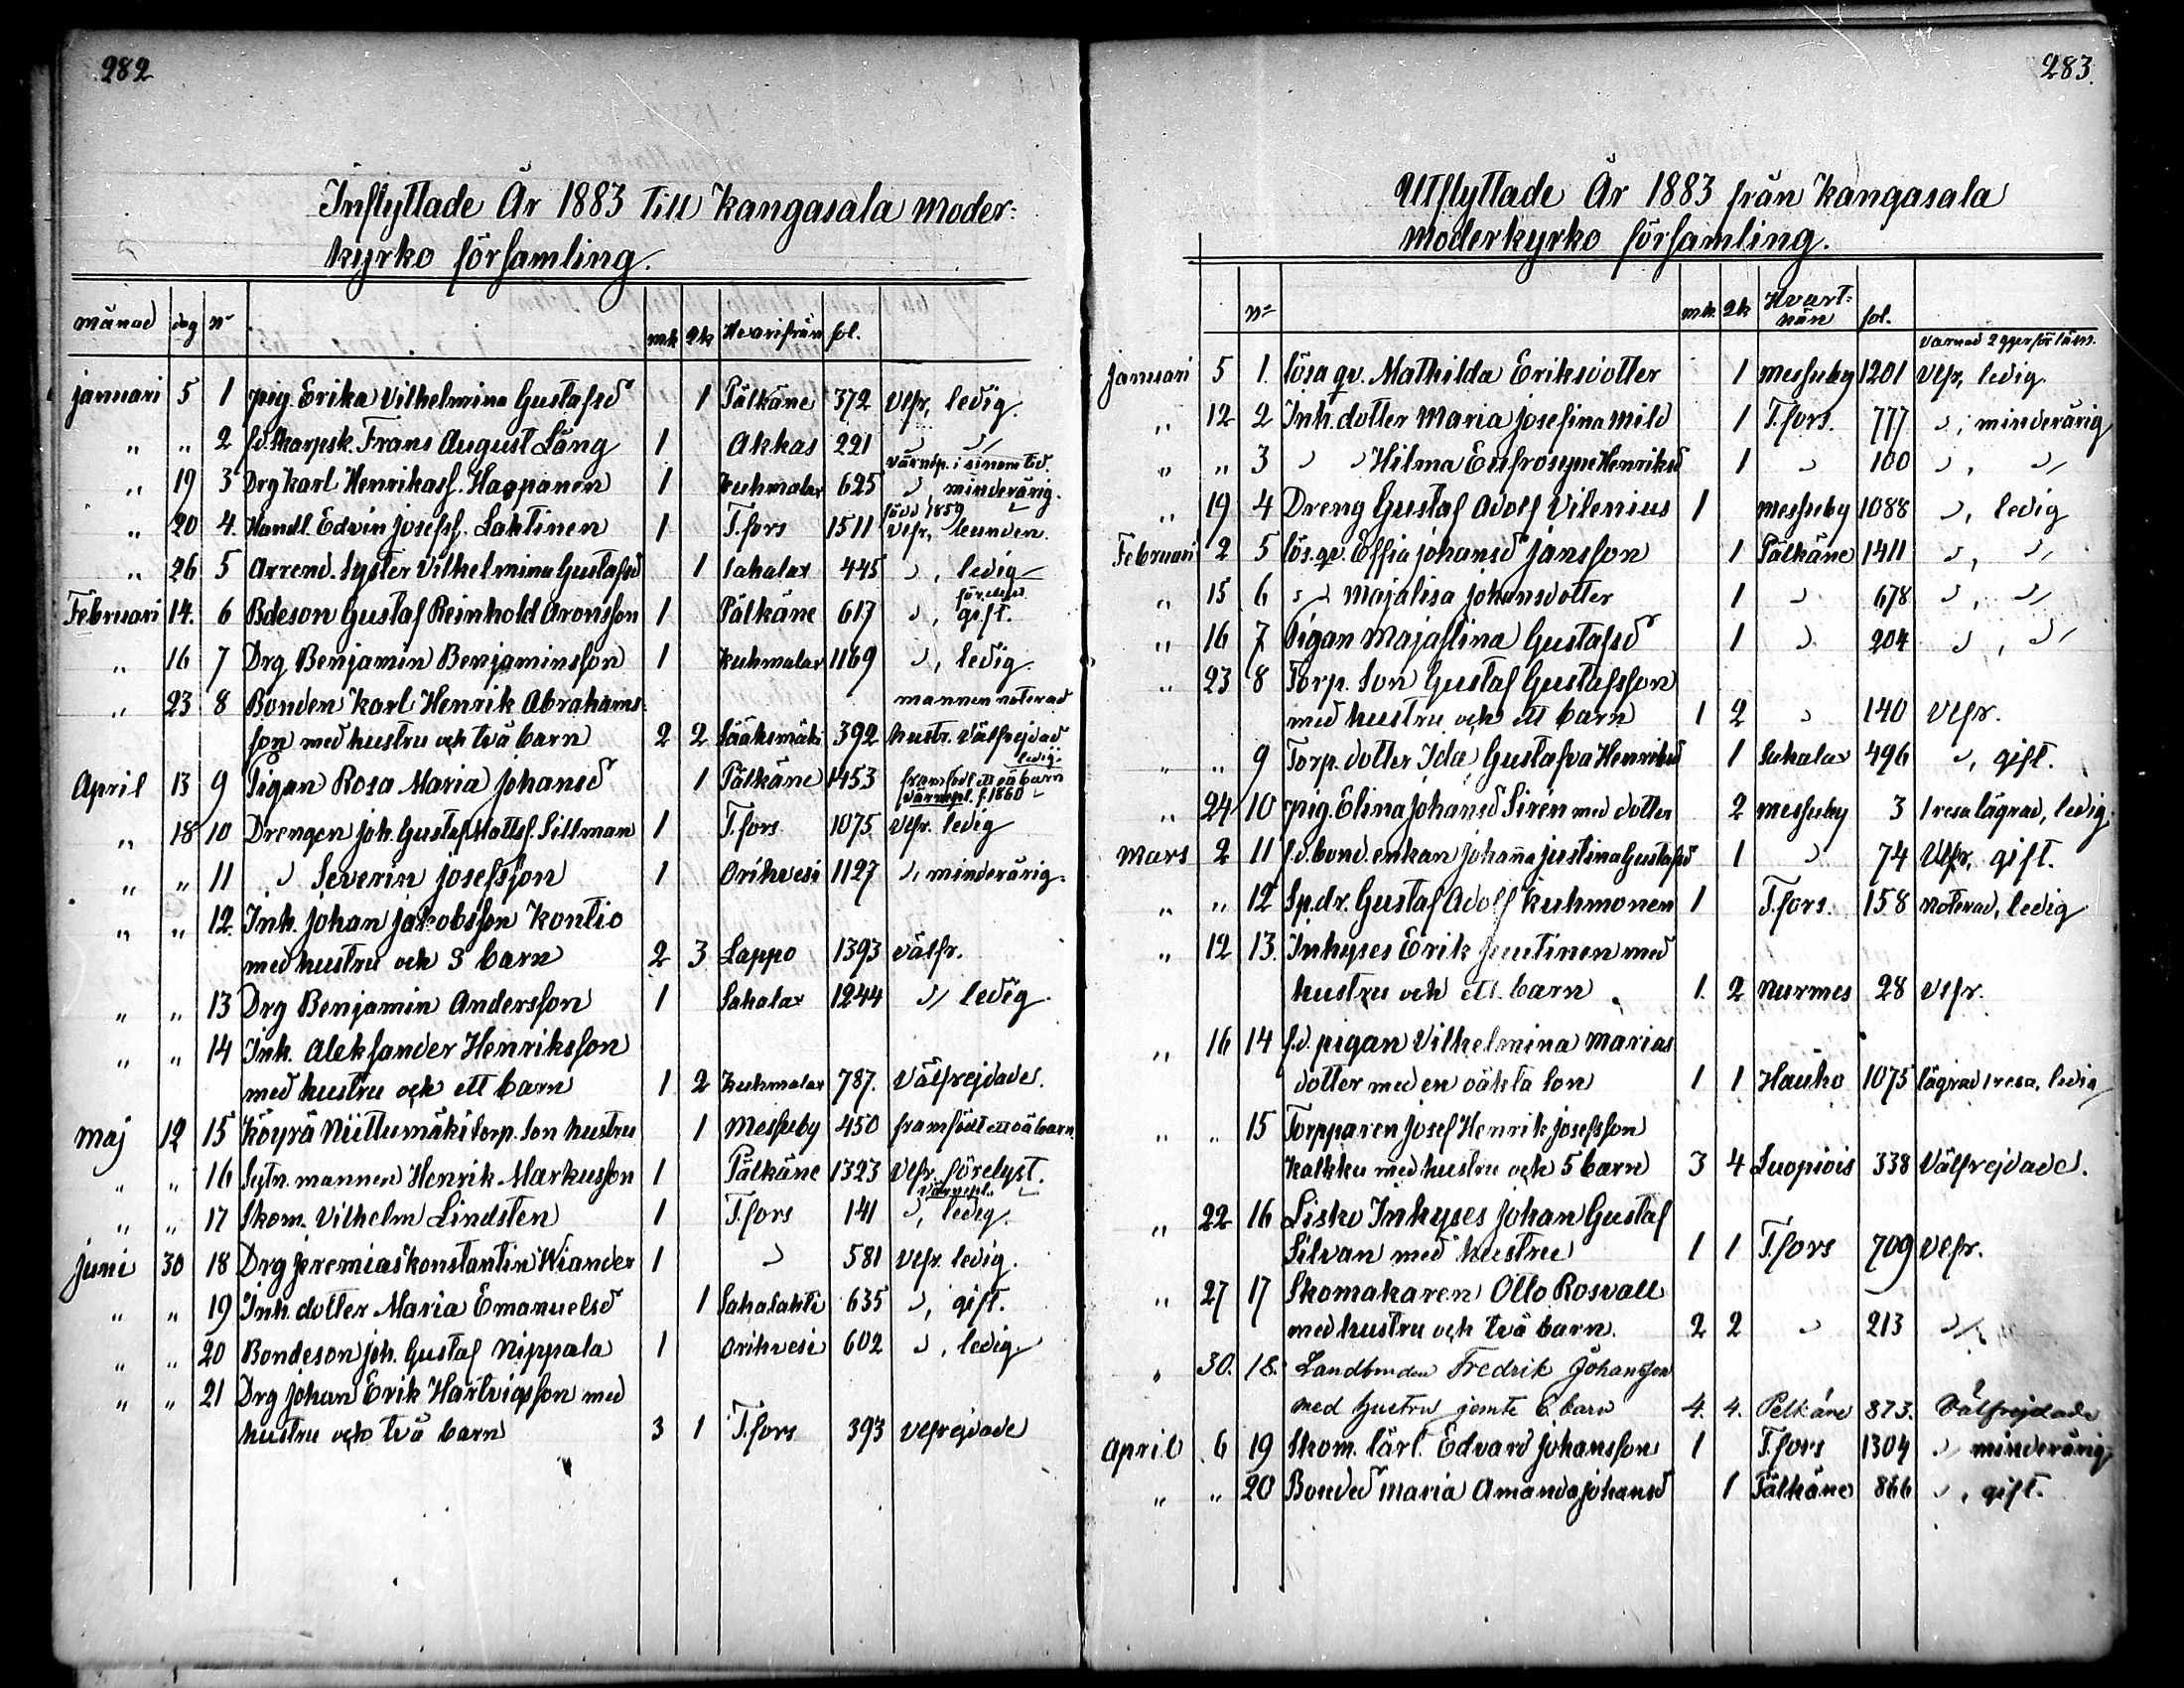 282
Inflyttade År 1883 till Kangasala moder-
kyrko församling.
månad dag No mk qk Hvarifrån fol.
januari 5 1 pig. Erika Vilhelmina Gustafsd 1 Pälkäne 372 Vlfr, ledig.
" " 2 f.d. Skarpsk. Frans August Lång 1 Akkas 221 " "
värnepl. i sinom tid.
" 19 3 Drg Karl Henrikass. Haapanen 1 Kuhmalax 625 ", minderårig.
född 1859
" 20 4. Handl. Edvin Josefss. Lahtinen 1 T.fors 1511 Vlfr,
" 26 5 Arrend. Syster Vilhelmina Gustafsd 1 Sahalax 445 ", ledig
Februari 14. 6 Bdeson Gustaf Reinhold Aronsson 1 Pälkäne 617 ", gift.
" 16 7 Drg Benjamin Benjaminsson 1 Kuhmalax 1169 ", ledig
" 23 8 Bonden Karl Henrik Abrahams- mannen noterad
son med hustru och två barn 2 2 Sääksmäki 392 hustr. Välfrejdad
ledig.
April 13 9 Pigan Rosa Maria Johansd 1 Pälkäne 1453 framfödt ett oä barn
värnepl. f. 1860
" 18 10 Drengen Joh. Gustaf Mattss. Sillman 1 T.fors 1075 Vlfr. ledig
" " 11 " Severin Josefsson 1 Orihvesi 1127 ", minderårig.
" " 12. Inh. Johan Jakobsson Kontio
med hustru och 3 barn 2 3 Lappo 1393 Välfr.
" " 13 Drg Benjamin Andersson 1 Sahalax 1244 " ledig.
" " 14 Inh. Aleksander Henriksson
med hustru och ett barn 1 2 Kuhmalax 787. Välfrejdade.
Maj 12 15 Köyrä Niittumäki torp. Son hustru 1 Messuby 450 framfödt ett oä barn.
" " 16 Sytn. mannen Henrik Markusson 1 Pälkäne 1323 Vlfr. förelyst.
värnepl.
" " 17 Skom. Vilhelm Lindsten 1 T.fors 141 ", ledig.
Juni 30 18 Drg Jeremias Konstantin Wiander 1 " 581 Vlfr. ledig.
" " 19 Inh. dotter Maria Emanuelsd 1 Sahalahti 635 ", gift.
" " 20 Bondeson Joh. Gustaf Nippala 1 Orihvesi 602 ", ledig.
" " 21 Drg Johan Erik Hartvigsson med
hustru och två barn 3 1 T.fors 393 Vlfrejdade
283.
Utflyttade År 1883 från Kangasala
moderkyrko församling.
No mk. qk Hvart-
hän fol.
varnad 2 ggr för läns.
Januari 5 1. lösa qv. Mathilda Eriksdotter 1 Messuby 1201 Vlfr, ledig.
" 12 2 Inh. dotter Maria Josefina Mild 1 T.fors. 777 ", minderårig
" " 3 " " Hilma Eufrosyne Henriksd 1 " 100 ", "
" 19 4 Dreng Gustaf Adolf Vilenius 1 Messuby 1088 ", ledig
Februari 2 5 lös. qv. Effia Johansd Jansson 1 Pälkäne 1411 ", "
" 15 6 " " Majalisa Johansdotter 1 " 678 ", "
" 16 7 Pigan Majastina Gustafsd 1 " 204 ", "
" 23 8 Torp. Son Gustaf Gustafsson
med hustru och ett barn 1 2 " 140 Vlfr.
" " 9 Torp. dotter Ida Gustafva Henriksd 1 Sahalax 496 ", gift.
" 24 10 pig. Elina Johansd Sirén med dotter 2 Messuby 3 1 resa lägrad, ledig.
Mars 2 11 f.d. bond. enkan Johanna Justina Gustafsd 1 " 74 Vlfr, gift.
" " 12 Sp. dr. Gustaf Adolf Kuhmonen 1 T.fors. 158 Noterad, ledig
" 12 13. Inhyses Erik Juutinen med
hustru och ett barn 1. 2 Nurmes 28 Vlfr.
" 16 14 f.d. pigan Vilhelmina Marias
dotter med en oäkta Son 1 1 Hauho 1075 lägrad 1 resa, ledig
" " 15 Torpparen Josef Henrik Josefsson
Kalkku med hustru och 5 barn 3 4 Luopiois 338 Välfrejdade.
" 22 16 Lisko Inhyses Johan Gustaf
Silvan med hustru 1 1 T.fors 709 Vlfr.
" 27 17 Skomakaren Otto Rosvall
med hustru och två barn. 2 2 " 213 "
" 30. 18. Landbonden Fredrik Johansson
med hustru jemte 6 barn 4. 4. Pelkäne 873. Välfrejdade
April 6 19 Skom. lärl. Edvard Johansson 1 T.fors 1304 " minderårig
" " 20 Bonded Maria Amanda Johansd 1 Pälkäne 866 ", gift.